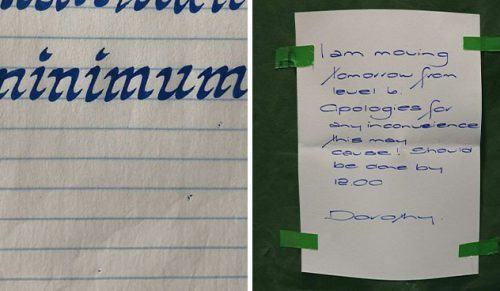 minimum
I am moving
tomorrow from
level 6.
Apologies for
any inconvenience
this may
cause! Should
be done by
12.00
Dorothy.